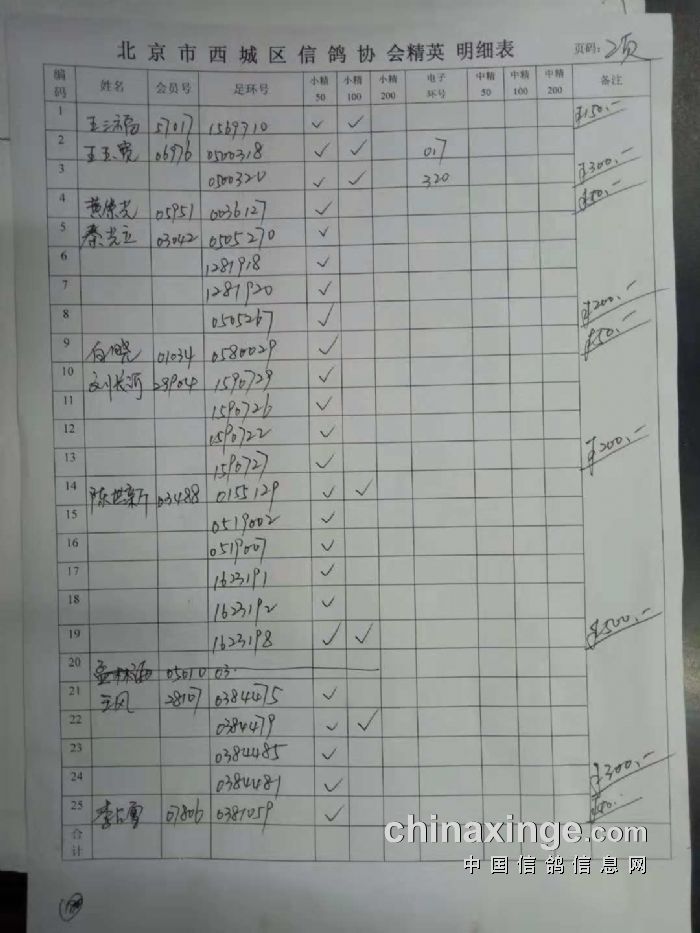 北京市西城区信鸽协会精英明细表 页码：2页
编码 姓名 会员号 足环号 小精50 小精100 小精200 电子环号 中精50 中精100 中精200 备注
1 王三福 57017 1569710 ✓ ✓ ¥150.-
2 王玉宽 06976 0500318 ✓ ✓ 017
3 0500320 ✓ ✓ 320 ¥300.-
4 黄荣光 05951 0036127 ✓ ¥50.-
5 秦光立 03042 0505270 ✓
6 1281918 ✓
7 1281920 ✓
8 0505267 ✓ ¥200.-
9 白晓 01034 0580029 ✓ ¥50.-
10 刘长河 28904 1590729 ✓
11 1590726 ✓
12 1590722 ✓
13 1590727 ✓ ¥200.-
14 陈世新 03488 0155129 ✓ ✓
15 0519002 ✓
16 0519007 ✓
17 1623191 ✓
18 1623192 ✓
19 1623198 ✓ ✓ ¥500.-
20 05010 03
21 王风 28107 0384475 ✓
22 0384479 ✓ ✓
23 0384485 ✓
24 0384481 ✓ ¥300.-
25 李占 07806 0381059 ✓ ¥50.-
合计
chinaxinge.com
中国信鸽信息网